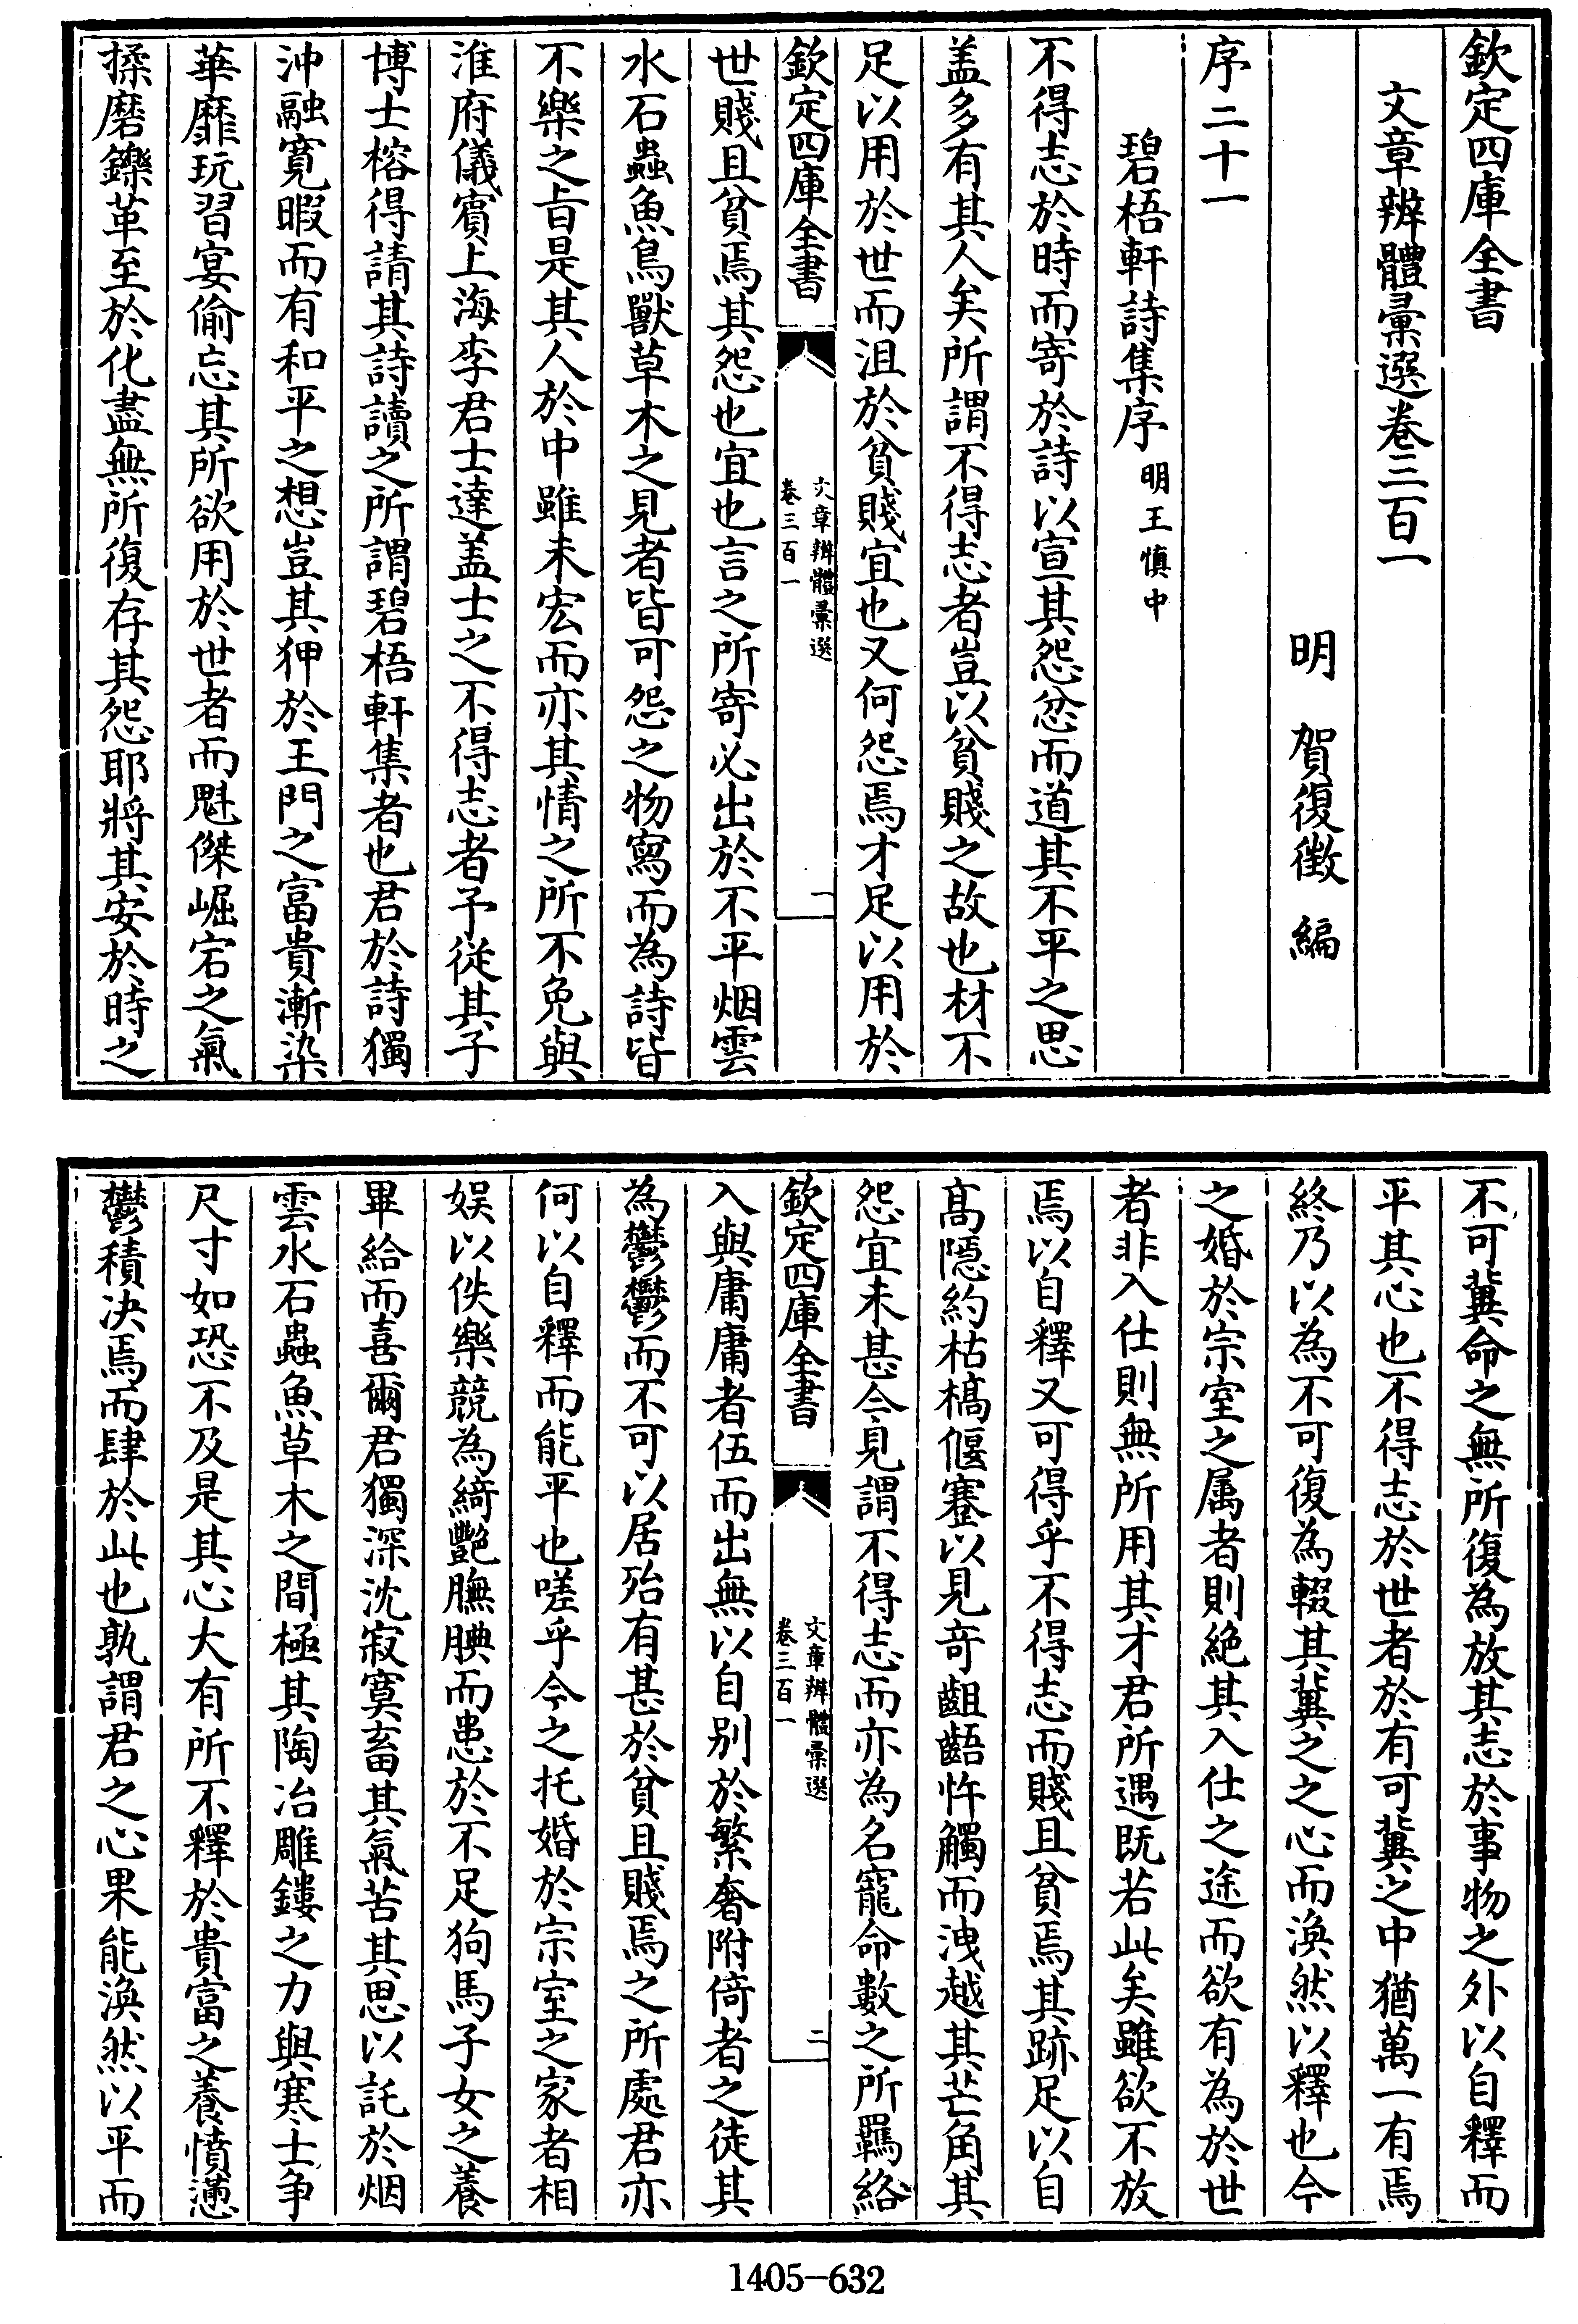 欽定四庫全書
文章辨體彚選卷三百一
明　賀復徴　編
序二十一
碧梧軒詩集序明王慎中
不得志於時而寄於詩以宣其怨忿而道其不平之思
盖多有其人矣所謂不得志者豈以貧賤之故也材不
足以用於世而沮於貧賤宜也又何怨焉才足以用於
欽定四庫全書
文章辨體彚選
卷三百一
一
世賤且貧焉其怨也宜也言之所寄必出於不平烟雲
水石蟲魚鳥獸草木之見者皆可怨之物寫而為詩皆
不樂之㫖是其人於中雖未宏而亦其情之所不免與
淮府儀賓上海李君士達盖士之不得志者予從其子
博士榕得請其詩讀之所謂碧梧軒集者也君於詩獨
沖融寛暇而有和平之想豈其狎於王門之富貴漸染
華靡玩習宴偷忘其所欲用於世者而魁傑崛宕之氣
揉磨鑠革至於化盡無所復存其怨耶將其安於時之
不可冀命之無所復為放其志於事物之外以自釋而
平其心也不得志於世者於有可冀之中猶萬一有焉
終乃以為不可復為輟其冀之之心而渙然以釋也今
之婚於宗室之属者則絶其入仕之途而欲有為於世
者非入仕則無所用其才君所遇既若此矣雖欲不放
焉以自釋又可得乎不得志而賤且貧焉其跡足以自
髙隠約枯槁偃蹇以見竒齟齬忤觸而洩越其芒角其
怨宜未甚今見謂不得志而亦為名寵命數之所羈絡
欽定四庫全書
文章辨體彚選
卷三百一
二
入與庸庸者伍而出無以自别於繁奢附倚者之徒其
為鬱鬱而不可以居殆有甚於貧且賤焉之所處君亦
何以自釋而能平也嗟乎今之托婚於宗室之家者相
娱以佚樂競為綺艷膴腆而患於不足狗馬子女之養
畢給而喜爾君獨深沈寂寞畜其氣苦其思以託於烟
雲水石蟲魚草木之間極其陶冶雕鏤之力與寒士争
尺寸如恐不及是其心大有所不釋於貴富之養憤懣
鬱積决焉而肆於此也孰謂君之心果能渙然以平而
1405-632